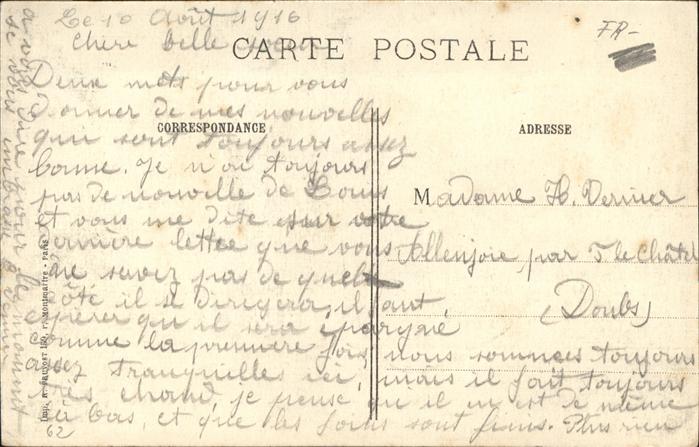 Le 10 Août 1916
Chère belle
FR-
CARTE POSTALE
CORRESPONDANCE
ADRESSE
Deux mots pour vous
donner de mes nouvelles
qui sont toujours assez
bonne. Je n'ai toujours
pas de nouvelle de Louis
et vous me dite sur votre
dernière lettre que vous
ne savez pas de quel
côté il se dirigera, il faut
espérer qu'il sera épargné
comme la première fois, nous sommes toujours
assez tranquilles ici, mais il fait toujours
très chaud, je pense qu'il en est de même
là bas, et que les foins sont finis. Plus rien
à vous dire pour le moment
je vous embrasse
Madame H. Vernier
Allenjoie par F. le Châtel
(Doubs)
Montmartre - Paris
62